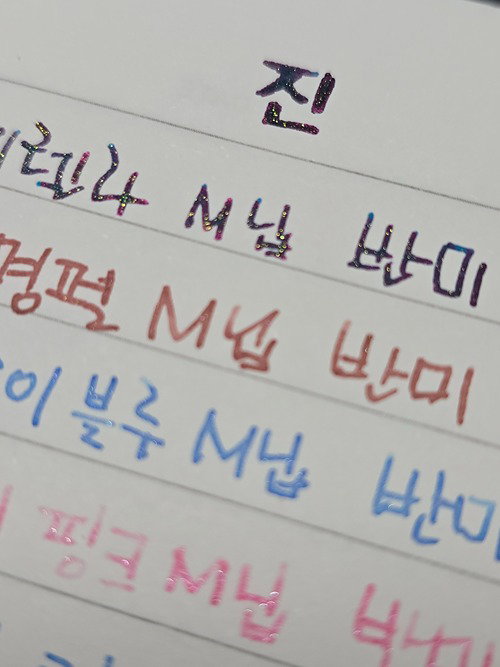 진
M닙 반미
명펄 M닙 반미
이 블루 M닙 반미
핑크 M닙